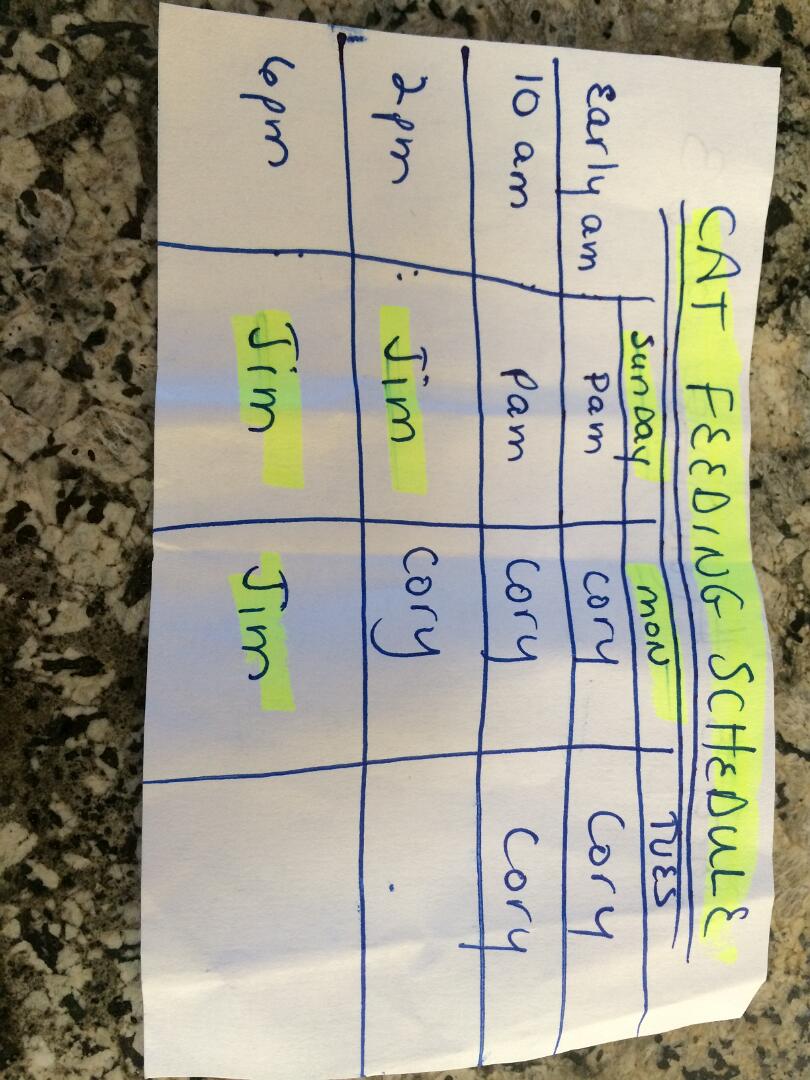 CAT FEEDING SCHEDULE
Sunday mon TUES
Early am Pam Cory Cory
10 am Pam Cory Cory
2pm Jim Cory
6pm Jim Jim